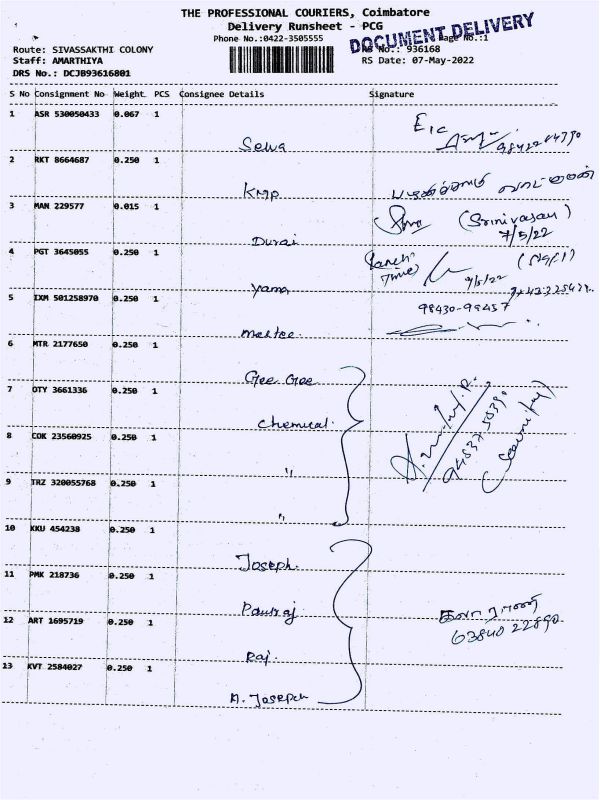 THE PROFESSIONAL COURIERS, Coimbatore
Delivery Runsheet - PCG
Phone No.:0422-3505555
DOCUMENT DELIVERY
Page No.:1
Route: SIVASSAKTHI COLONY
RS No.: 936168
Staff: AMARTHIYA
RS Date: 07-May-2022
DRS No.: DCJB93616801
S No Consignment No Weight PCS Consignee Details Signature
1 ASR 530050433 0.067 1
Selva
2 RKT 8664687 0.250 1
KMP
3 MAN 229577 0.015 1 (Srinivasan)
7/5/22
Durai
4 PGT 3645055 0.250 1
9/5/22
Yama
5 IXM 501258970 0.250 1 98430-99457
6 MTR 2177650 0.250 1
Gee Gee
7 OTY 3661336 0.250 1
Chemical.
8 COK 23560925 0.250 1
"
9 TRZ 320055768 0.250 1
"
10 KKU 454238 0.250 1
Joseph.
11 PMK 218736 0.250 1
Paulraj
12 ART 1695719 0.250 1 63840 22890
Raj
13 KVT 2584027 0.250 1
A. Joseph